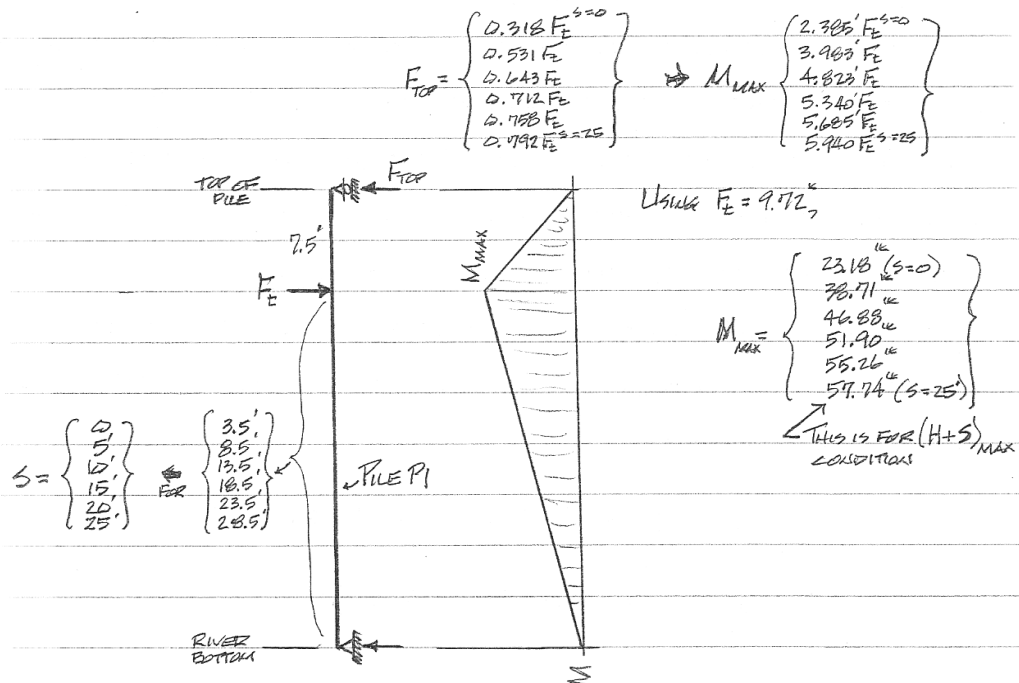 F_TOP = { 0.318 F_t^S=0
0.531 F_t
0.643 F_t
0.712 F_t
0.758 F_t
0.792 F_t^S=25 }
⇒ M_MAX { 2.385' F_t^S=0
3.983' F_t
4.823' F_t
5.340' F_t
5.685' F_t
5.940' F_t^S=25 }
TOP OF
PILE
F_TOP
USING F_t = 9.72^k,
7.5'
M_MAX
F_t
M_MAX = { 23.18^'k (S=0)
38.71^'k
46.88^'k
51.90^'k
55.26^'k
57.74^'k (S=25') }
THIS IS FOR (H+S)_MAX
CONDITION
S = { 0,
5,'
10,'
15,'
20,'
25' }
← FOR
{ 3.5,'
8.5,'
13.5,'
18.5,'
23.5,'
28.5' }
PILE P1
RIVER
BOTTOM
M